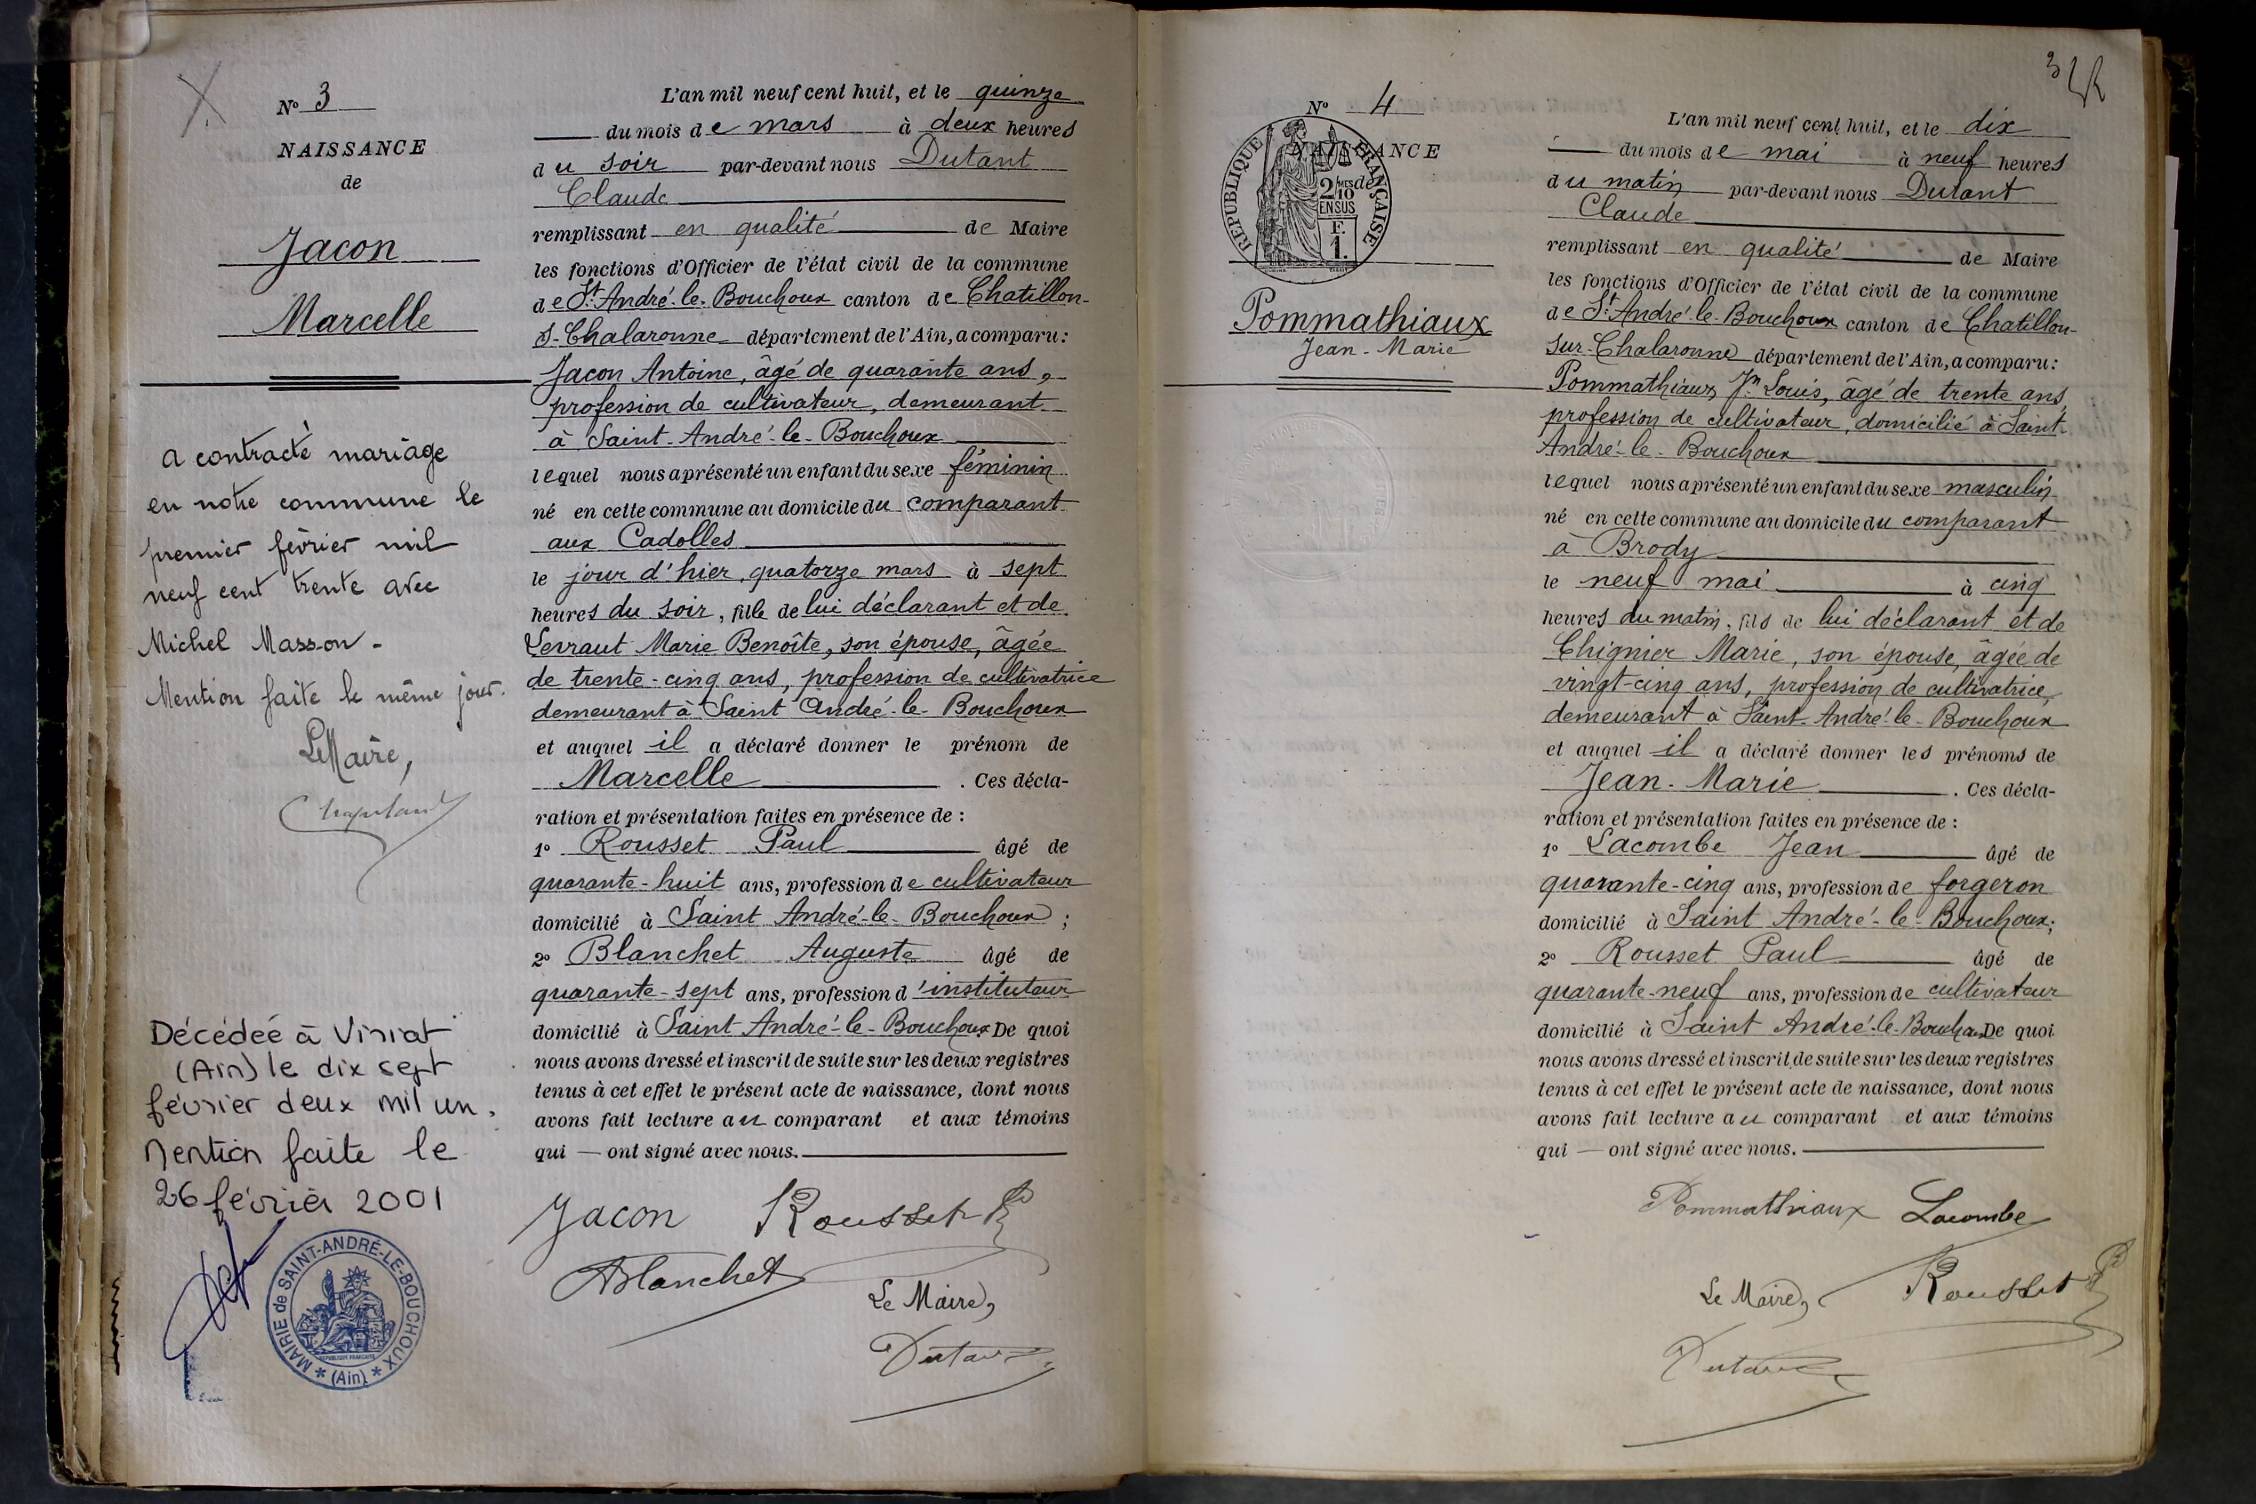 N° 3
NAISSANCE
de
Jacon
Marcelle
a contracté mariage
en notre commune le
premier février mil
neuf cent trente avec
Michel Masson -
Mention faite le même jour.
Le Maire,
Décédée à Viriat
(Ain) le dix sept
février deux mil un.
Mention faite le
26 février 2001
MAIRIE de SAINT-ANDRÉ-LE-BOUCHOUX
RÉPUBLIQUE FRANÇAISE
* (Ain) *
L'an mil neuf cent huit, et le quinze
du mois de mars à deux heures
du soir par-devant nous Dutant
Claude
remplissant en qualité de Maire
les fonctions d'Officier de l'état civil de la commune
de St. André-le-Bouchoux canton de Chatillon-
s-Chalaronne département de l'Ain, a comparu:
Jacon Antoine, âgé de quarante ans,
profession de cultivateur, demeurant
à Saint-André-le-Bouchoux
lequel nous a présenté un enfant du sexe féminin
né en cette commune au domicile du comparant
aux Cadolles
le jour d'hier, quatorze mars à sept
heures du soir, fille de lui déclarant et de
Levraut Marie Benoîte, son épouse, âgée
de trente-cinq ans, profession de cultivatrice
demeurant à Saint André-le-Bouchoux
et auquel il a déclaré donner le prénom de
Marcelle. Ces décla-
ration et présentation faites en présence de :
1° Rousset Paul âgé de
quarante-huit ans, profession de cultivateur
domicilié à Saint André-le-Bouchoux ;
2° Blanchet Auguste âgé de
quarante-sept ans, profession d'instituteur
domicilié à Saint André-le-Bouchoux De quoi
nous avons dressé et inscrit de suite sur les deux registres
tenus à cet effet le présent acte de naissance, dont nous
avons fait lecture au comparant et aux témoins
qui — ont signé avec nous.
Jacon Rousset P
ABlanchet
Le Maire,
Dutant
3
N° 4
NAISSANCE
de
RÉPUBLIQUE FRANÇAISE
2/10 MES
EN SUS
F.
1.
Pommathiaux
Jean-Marie
L'an mil neuf cent huit, et le dix
du mois de mai à neuf heures
du matin par-devant nous Dutant
Claude
remplissant en qualité de Maire
les fonctions d'Officier de l'état civil de la commune
de St André-le-Bouchoux canton de Chatillon-
sur-Chalaronne département de l'Ain, a comparu:
Pommathiaux Jn Louis, âgé de trente ans,
profession de cultivateur, domicilié à Saint-
André-le-Bouchoux
lequel nous a présenté un enfant du sexe masculin
né en cette commune au domicile du comparant
à Brody
le neuf mai à cinq
heures du matin, fils de lui déclarant et de
Chignier Marie, son épouse, âgée de
vingt-cinq ans, profession de cultivatrice,
demeurant à Saint-André-le-Bouchoux
et auquel il a déclaré donner les prénoms de
Jean-Marie. Ces décla-
ration et présentation faites en présence de :
1° Lacombe Jean âgé de
quarante-cinq ans, profession de forgeron
domicilié à Saint André-le-Bouchoux;
2° Rousset Paul âgé de
quarante-neuf ans, profession de cultivateur
domicilié à Saint André-le-Bouchoux De quoi
nous avons dressé et inscrit de suite sur les deux registres
tenus à cet effet le présent acte de naissance, dont nous
avons fait lecture au comparant et aux témoins
qui — ont signé avec nous.
Pommathiaux Lacombe
Le Maire, Rousset P
Dutant